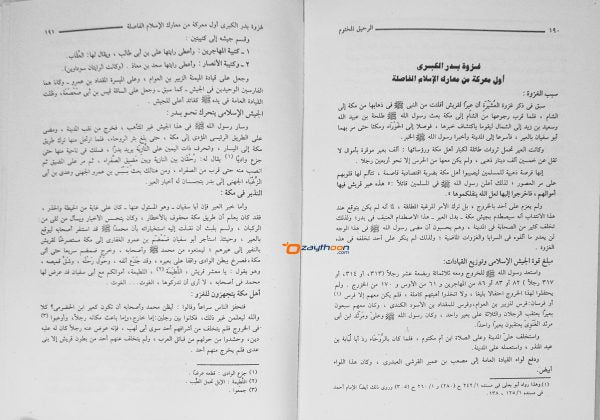 ١٩٠
الرحيق المختوم
غزوة بدر الكبرى
أول معركة من معارك الإسلام الفاصلة
سبب الغزوة :
سبق في ذكر غزوة العُشَيْرَة أن عيراً لقريش أفلتت من النبي ﷺ في ذهابها من مكة إلى
الشام ، فلما قرب رجوعها من الشام إلى مكة بعث رسول الله ﷺ طلحة بن عبيد الله
وسعيد بن زيد إلى الشمال ليقوما باكتشاف خبرها ، فوصلا إلى الحوراء ومكثا حتى مر بهما
أبو سفيان بالعير ، فأسرعا إلى المدينة وأخبرا رسول الله ﷺ
وكانت العير تحمل ثروات طائلة لكبار أهل مكة ورؤسائها : ألف بعير موقرة بأموال لا
تقل عن خمسين ألف دينار ذهبي ، ولم يكن معها من الحرس إلا نحو أربعين رجلا .
إنها فرصة ذهبية للمسلمين ليصيبوا أهل مكة بضربة اقتصادية قاصمة ، تتألم لها قلوبهم
على مر العصور ، لذلك أعلن رسول الله ﷺ في المسلمين قائلا : هذه عير قريش فيها
أموالهم ، فاخرجوا إليها لعل الله ينفلكموها
ولم يعزم على أحد بالخروج ، بل ترك الأمر للرغبة المطلقة ، لما أنه لم يكن يتوقع عند
هذا الانتداب أنه سيصطدم بجيش مكة ـ بدل العير ـ هذا الاصطدام العنيف في بدر؛ ولذلك
تخلف كثير من الصحابة في المدينة ، وهم يحسبون أن مضي رسول الله ﷺ في هذا الوجه
لن يعدو ما ألفوه في السرايا والغزوات الماضية ؛ ولذلك لم ينكر على أحد تخلفه في هذه
الغزوة .
مبلغ قوة الجيش الإسلامي وتوزيع القيادات:
واستعد رسول الله ﷺ للخروج ومعه ثلاثمائة وبضعة عشر رجلاً (٣١٣، أو ٣١٤، أو
٣١٧ رجلاً) ٨٢ أو ٨٣ أو ٨٦ من المهاجرين و ٦١ من الأوس و ١٧٠ من الخزرج . ولم
يحتفلوا لهذا الخروج احتفالا بليغا ، ولا اتخذوا أهبتهم كاملة ، فلم يكن معهم إلا فرس (١)
أو فرسان: فرس للزبير بن العوام، وفرس للمقداد بن الأسود الكندي ، وكان معهم سبعون
بعيراً يعتقب الرجلان والثلاثة على بعير واحد ، وكان رسول الله ﷺ وعلىّ ومَرْثَد بن أبي
مرثد الغَنَوِي يعتقبون بعيراً واحدا.
واستخلف على المدينة وعلى الصلاة ابن أم مكتوم ، فلما كان بالرَّوْحَاء رد أبا لبابة بن
عبد المنذر ، واستعمله على المدينة.
ودفع لواء القيادة العامة إلى مصعب بن عمير القرشى العبدرى ، وكان هذا اللواء
أبيض.
غزوة بدر الكبرى أول معركة من معارك الإسلام الفاصلة
١٩١
وقسم جيشه إلى كتيبتين :
١ ـ كتيبة المهاجرين : وأعطى رايتها على بن أبي طالب ، ويقال لها: العُقَاب.
٢ ـ وكتيبة الأنصار : وأعطى رايتها سعد بن معاذ . (وكانت الرايتان سوداوين).
وجعل على قيادة الميمنة الزبير بن العوام ، وعلى الميسرة المقداد بن عمرو ـ وكانا هما
الفارسين الوحيدين في الجيش ـ كما سبق ـ وجعل على الساقة قيس بن أبي صَعْصَعَة، وظلت
القيادة العامة في يده ﷺ كقائد أعلى للجيش .
الجيش الإسلامي يتحرك نحو بدر :
وسار رسول الله ﷺ في هذا الجيش غير المتأهب ، فخرج من نقب المدينة ، ومضى
على الطريق الرئيسي المؤدى إلى مكة ، حتى بلغ بئر الروحاء، فلما ارتحل منها ترك طريق
مكة إلى اليسار ، وانحرف ذات اليمين على النازية يريد بدراً ، فسلك في ناحية منها حتى
جزع وادياً (١) يقال له : رُحْقَان بين النازية وبين مضيق الصفراء ، ثم مر على المضيق ثم
انصب منه حتى قرب من الصفراء ، ومن هنالك بعث بَسْبَس بن عمرو الجهني وعدى بن أبي
الزَّغْبَاء الجهني إلى بدر يتجسسان له أخبار العير .
النذير في مكة :
وأما خبر العير فإن أبا سفيان ـ وهو المسئول عنها ـ كان على غاية من الحيطة والحذر ،
فقد كان يعلم أن طريق مكة محفوف بالأخطار ، وكان يتحسس الأخبار ويسأل من لقى من
الركبان، ولم يلبث أن نقلت إليه استخباراته بأن محمداً ﷺ قد استنفر أصحابه ليوقع
بالعير ، وحينئذ استأجر أبو سفيان ضمضم بن عمرو الغفاري إلى مكة مستصرخاً لقريش
بالنفير إلى عيرهم ، ليمنعوه من محمد ﷺ وأصحابه ، وخرج ضمضم سريعا حتى أتى
مكة ، فصرخ ببطن الوادي واقفا على بعيره ، وقد جدع أنفه ، وحول رحله ، وشق قميصه ،
وهو يقول : يا معشر قريش ، اللَّطِيمَةَ (٢) ، اللطيمة، أموالكم مع أبي سفيان قد عرض لها
محمد في أصحابه ، لا أرى أن تدركوها ، الغوث... الغوث.
أهل مكة يتجهزون للغزو :
فتحفز الناس سراعا وقالوا : أيظن محمد وأصحابه أن تكون كعير ابن الحضرمي؟ كلا
والله ليعلمن غير ذلك، فكانوا بين رجلين: إما خارج، وإما باعث مكانه رجلاً، وأوعبوا (٣)
في الخروج فلم يتخلف من أشرافهم أحد سوى أبي لهب ، فإنه عوض عنه رجلاً كان له عليه
دين، وحشدوا من حولهم من قبائل العرب ، ولم يتخلف عنهم أحد من بطون قريش إلا بنى
عدى فلم يخرج منهم أحد .
(١) جزع الوادي : قطعه عرضا .
(٢) اللطيمة : الإبل تحمل الطيب .
(٣) جمعوا .
Ozaythoon
.com